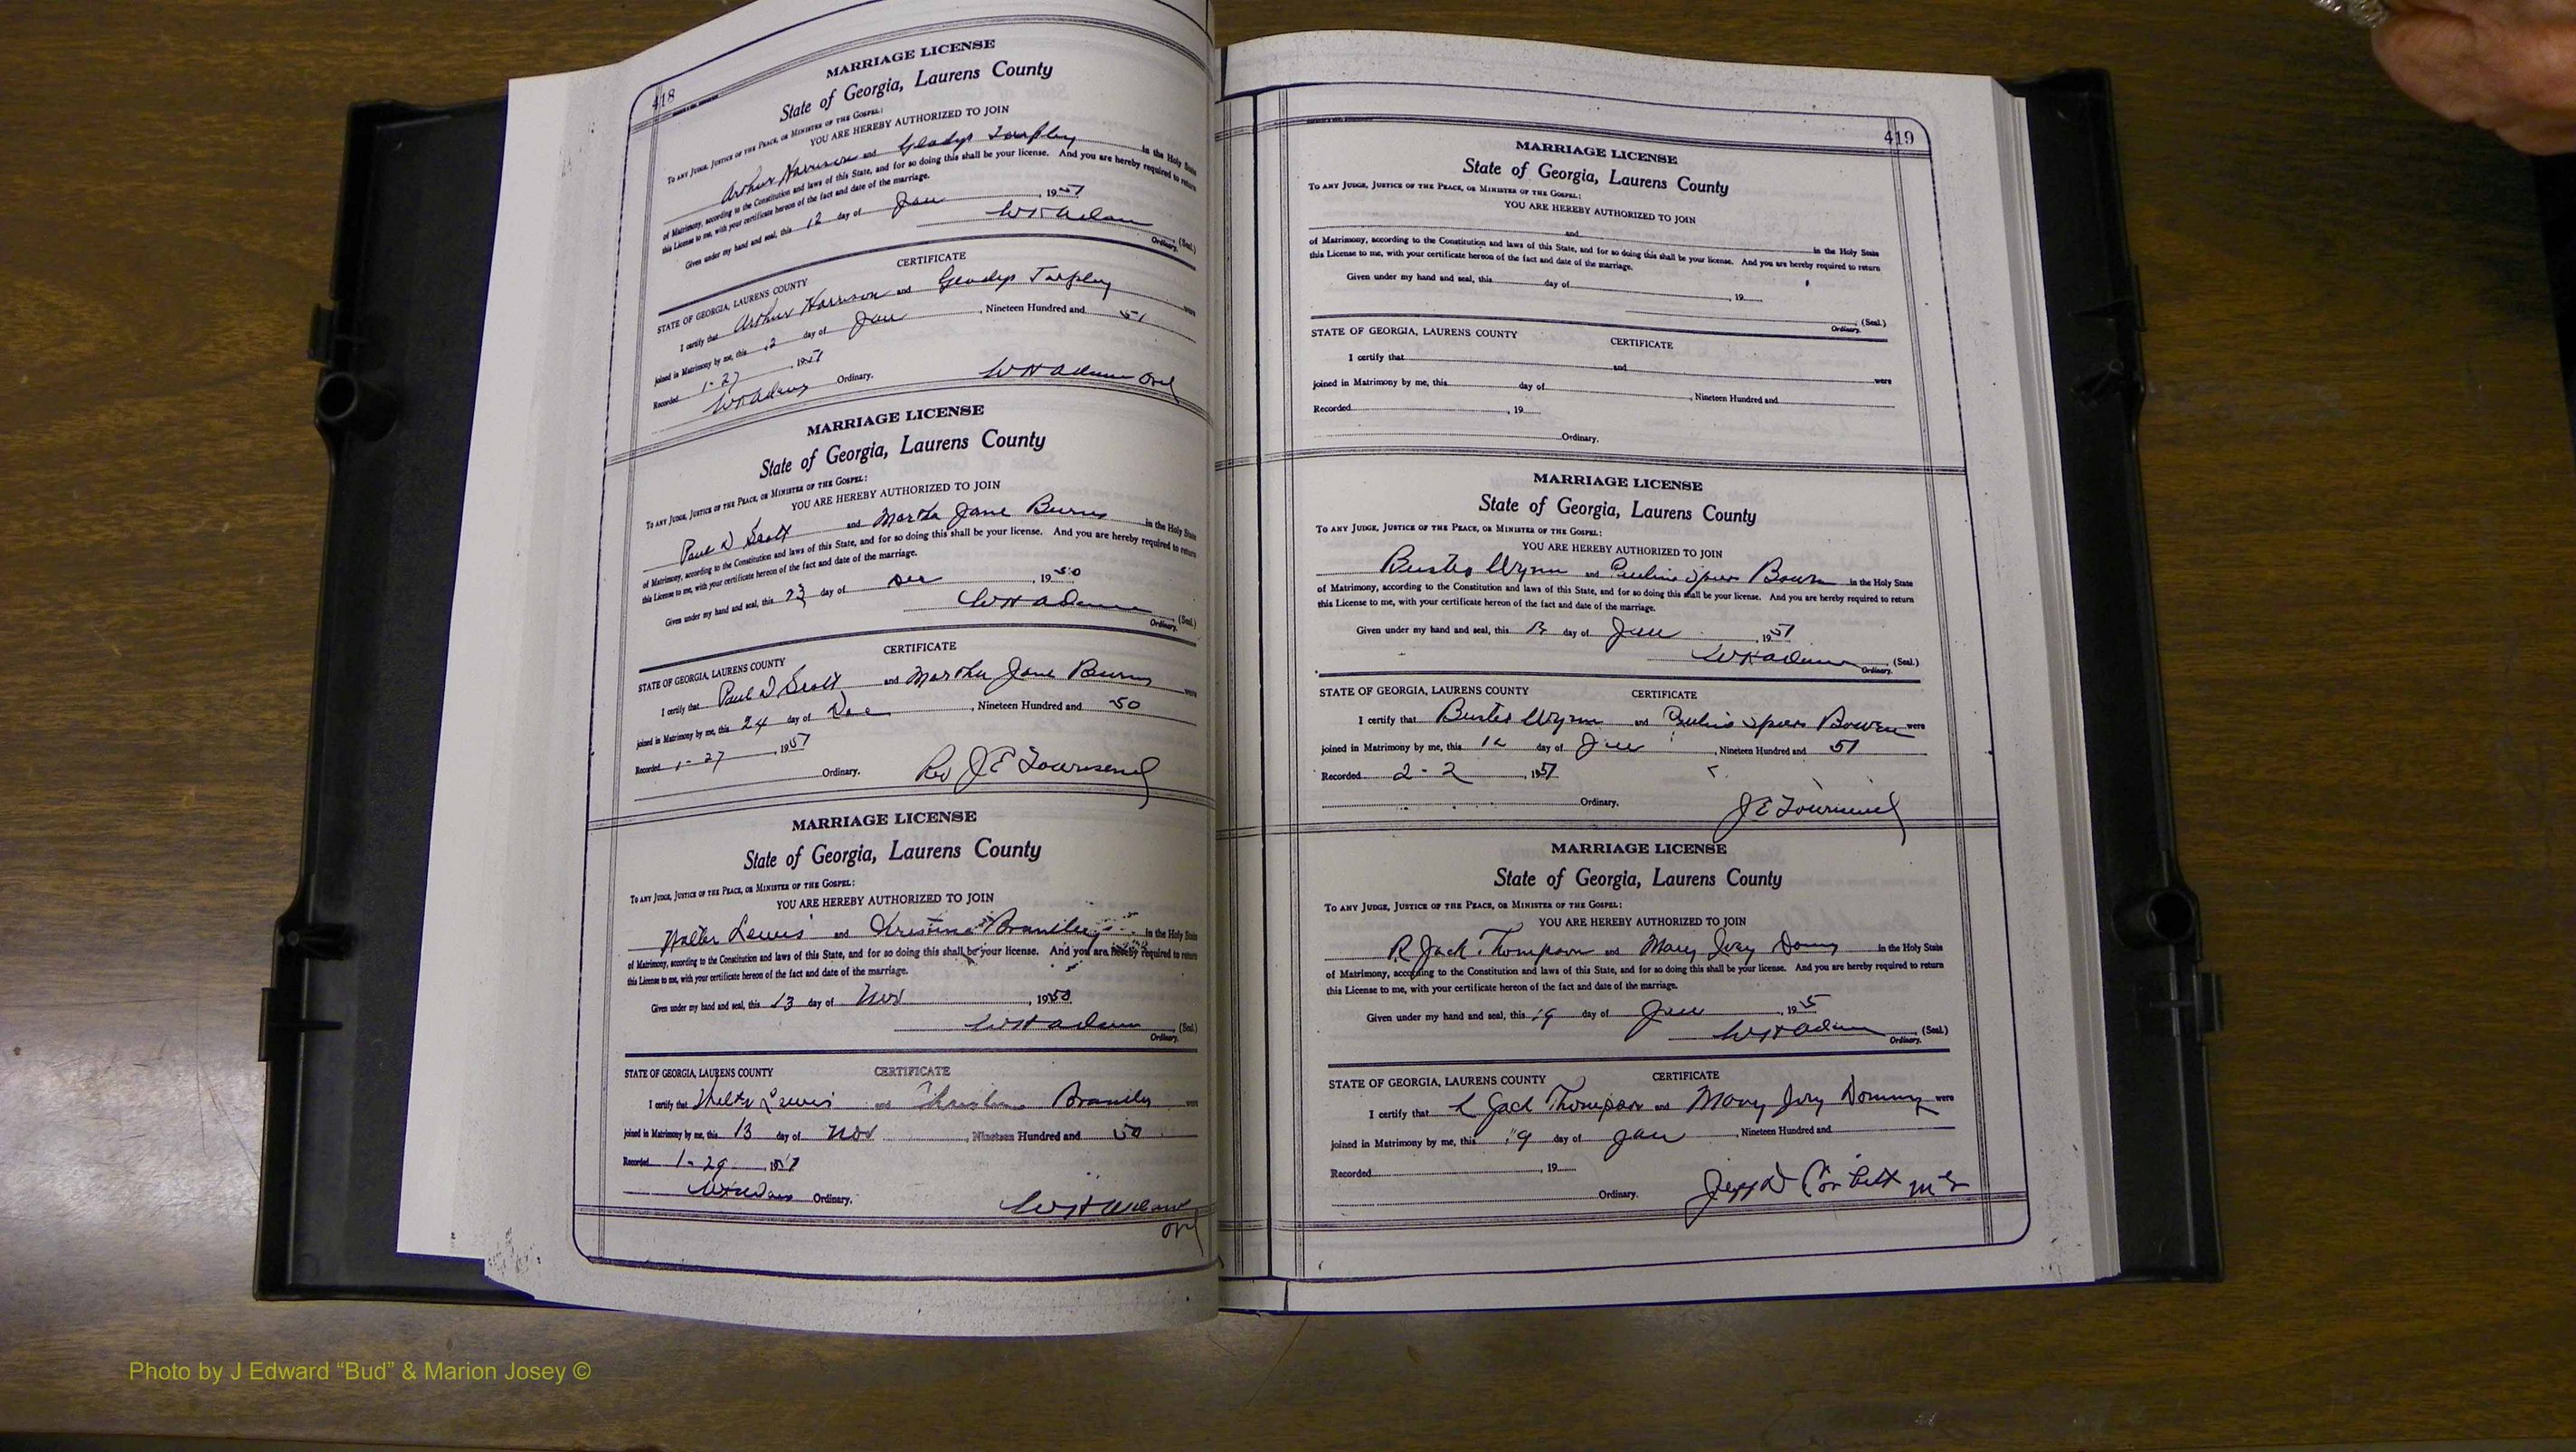 418
MARRIAGE LICENSE
State of Georgia, Laurens County
To any Judge, Justice of the Peace, or Minister of the Gospel:
YOU ARE HEREBY AUTHORIZED TO JOIN
Arthur Harrison and Gladys Tarpley in the Holy State
of Matrimony, according to the Constitution and laws of this State, and for so doing this shall be your license. And you are hereby required to return
this License to me, with your certificate hereon of the fact and date of the marriage.
Given under my hand and seal, this 12 day of Jan, 1951
W H Adams (Seal.)
Ordinary.
CERTIFICATE
STATE OF GEORGIA, LAURENS COUNTY
I certify that Arthur Harrison and Gladys Tarpley were
joined in Matrimony by me, this 12 day of Jan, Nineteen Hundred and 51
Recorded 1-27, 1951
W H Adams Ordinary. W H Adams Ord
MARRIAGE LICENSE
State of Georgia, Laurens County
To any Judge, Justice of the Peace, or Minister of the Gospel:
YOU ARE HEREBY AUTHORIZED TO JOIN
Paul D Scott and Martha Jane Burns in the Holy State
of Matrimony, according to the Constitution and laws of this State, and for so doing this shall be your license. And you are hereby required to return
this License to me, with your certificate hereon of the fact and date of the marriage.
Given under my hand and seal, this 23 day of Dec, 1950
W H Adams (Seal.)
Ordinary.
CERTIFICATE
STATE OF GEORGIA, LAURENS COUNTY
I certify that Paul D Scott and Martha Jane Burns were
joined in Matrimony by me, this 24 day of Dec, Nineteen Hundred and 50
Recorded 1-27, 1951
Ordinary. Rev J E Townsend
MARRIAGE LICENSE
State of Georgia, Laurens County
To any Judge, Justice of the Peace, or Minister of the Gospel:
YOU ARE HEREBY AUTHORIZED TO JOIN
Walter Lewis and Christine Brantley in the Holy State
of Matrimony, according to the Constitution and laws of this State, and for so doing this shall be your license. And you are hereby required to return
this License to me, with your certificate hereon of the fact and date of the marriage.
Given under my hand and seal, this 13 day of Nov, 1950
W H Adams (Seal.)
Ordinary.
STATE OF GEORGIA, LAURENS COUNTY CERTIFICATE
I certify that Walter Lewis and Christine Brantley were
joined in Matrimony by me, this 13 day of Nov, Nineteen Hundred and 50
Recorded 1-29, 1951
W H Adams Ordinary. W H Adams
Ord
419
MARRIAGE LICENSE
State of Georgia, Laurens County
To any Judge, Justice of the Peace, or Minister of the Gospel:
YOU ARE HEREBY AUTHORIZED TO JOIN
and in the Holy State
of Matrimony, according to the Constitution and laws of this State, and for so doing this shall be your license. And you are hereby required to return
this License to me, with your certificate hereon of the fact and date of the marriage.
Given under my hand and seal, this day of , 19
(Seal.)
Ordinary.
STATE OF GEORGIA, LAURENS COUNTY CERTIFICATE
I certify that and were
joined in Matrimony by me, this day of , Nineteen Hundred and
Recorded , 19
Ordinary.
MARRIAGE LICENSE
State of Georgia, Laurens County
To any Judge, Justice of the Peace, or Minister of the Gospel:
YOU ARE HEREBY AUTHORIZED TO JOIN
Buster Wynn and Pauline Spires Bowen in the Holy State
of Matrimony, according to the Constitution and laws of this State, and for so doing this shall be your license. And you are hereby required to return
this License to me, with your certificate hereon of the fact and date of the marriage.
Given under my hand and seal, this day of Jan, 1951
W H Adams (Seal.)
Ordinary.
STATE OF GEORGIA, LAURENS COUNTY CERTIFICATE
I certify that Buster Wynn and Pauline Spires Bowen were
joined in Matrimony by me, this day of Jan, Nineteen Hundred and 51
Recorded 2-2, 1951
Ordinary. J E Townsend
MARRIAGE LICENSE
State of Georgia, Laurens County
To any Judge, Justice of the Peace, or Minister of the Gospel:
YOU ARE HEREBY AUTHORIZED TO JOIN
R Jack Thompson and Mary Ivey in the Holy State
of Matrimony, according to the Constitution and laws of this State, and for so doing this shall be your license. And you are hereby required to return
this License to me, with your certificate hereon of the fact and date of the marriage.
Given under my hand and seal, this 19 day of Jan, 195
W H Adams (Seal.)
Ordinary.
STATE OF GEORGIA, LAURENS COUNTY CERTIFICATE
I certify that Jack Thompson and Mary Ivey were
joined in Matrimony by me, this 19 day of Jan, Nineteen Hundred and
Recorded , 19
Ordinary. Corbett
Photo by J Edward “Bud” & Marion Josey ©